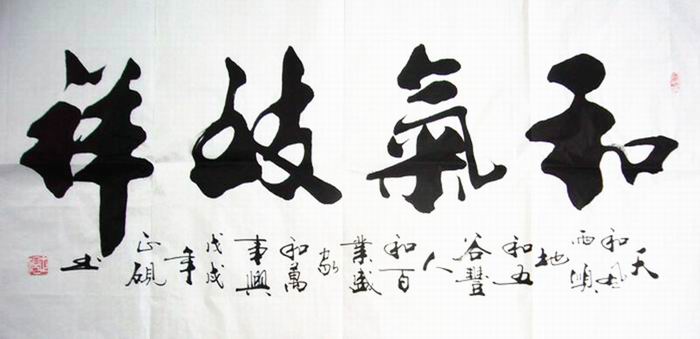 和氣致祥
天
和風
雨順
地
和五
谷豐
人
和百
業盛
家
和萬
事興
戊戌
年
正硯
书